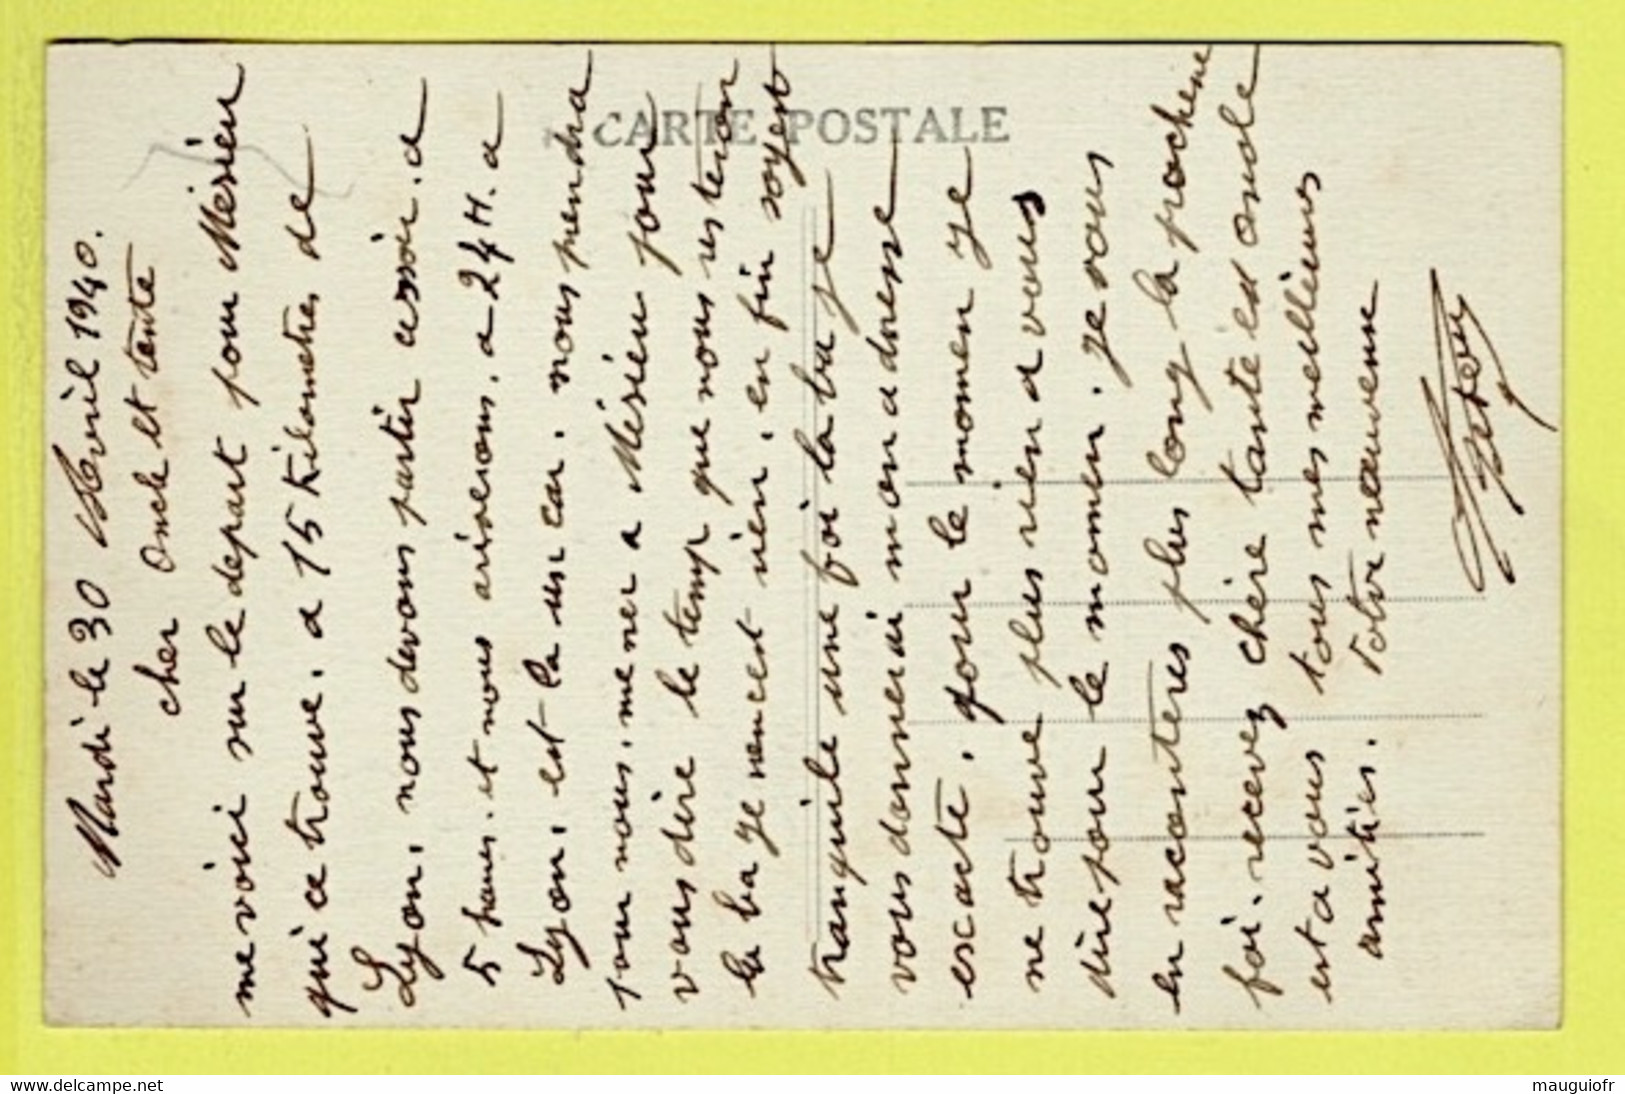 CARTE POSTALE
Mardi le 30 Avril 1940.
cher oncle et tente
me voici sur le depart pour Mésieu
qui ce trouve, a 15 kilometres de
Lyon, nous devons partir cessoir. a
5 heures. et nous ariverons, a 24 H. a
Lyon, est la un car, nous prendra
pour nous, mener a Mésieu pour
vous dire le temp que nous resterion
la ba je nencest rien, en fin soyest
tranquile une foi la ba je
vous donnerai mon adresse
escacte, pour le momen je
ne trouve plus rien a vous
dire pour le momen. je vous
en raconteres plus long la procheine
foi. recevez chère tante est oncle
est a vous tous mes meilleures
amitiés. Votre neauveue
www.delcampe.net
mauguiofr